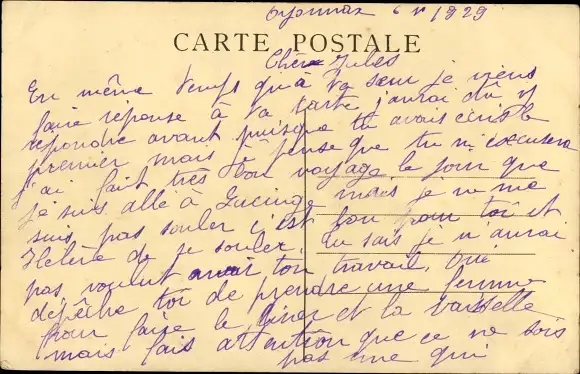 Oyonnax 6 V 1929
CARTE POSTALE
Cher Jules
En même temps qu'à ta sœur je viens
faire réponse à ta carte j'aurai dû y
répondre avant puisque tu avais écris le
premier mais je pense que tu m'excusera
j'ai fait très bon voyage le jour que
je suis allé à mais je ne me
suis pas souler c'est bon pour toi et
Helène de se souler, tu sais je n'aurai
pas voulut avoir ton travail, oui
dépêche toi de prendre une femme
pour faire le diner et la vaisselle
mais fais attention que ce ne sois
pas une qui